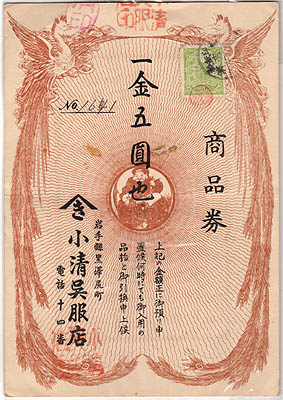 商品券
一金五圓也
No. 1641
上記の金額正に御預り申
置候何時にても御入用の
品物と御引換申上候
岩手縣里澤尻町
小清呉服店
電話十四番